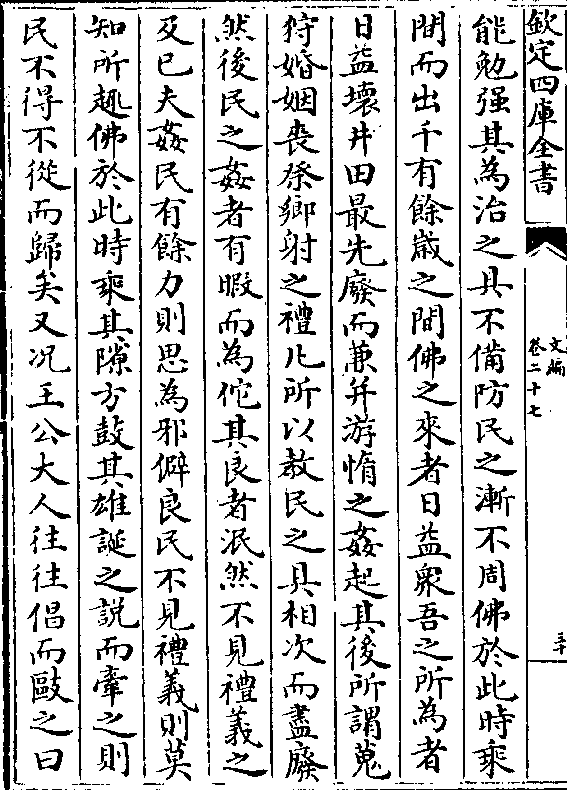 欽定四庫全書
文編
卷二十七
三十
能勉强其為治之具不備防民之漸不周佛於此時乗
間而出千有餘嵗之間佛之來者日益衆吾之所為者
日益壊井田最先廢而兼并游惰之姦起其後所謂蒐
狩婚姻喪祭鄉射之禮凡所以教民之具相次而盡廢
然後民之姦者有暇而為佗其良者泯然不見禮義之
及已夫姦民有餘力則思為邪僻良民不見禮義則莫
知所趣佛於此時乗其隙方鼓其雄誕之説而牽之則
民不得不從而歸矣又况王公大人往往倡而敺之曰